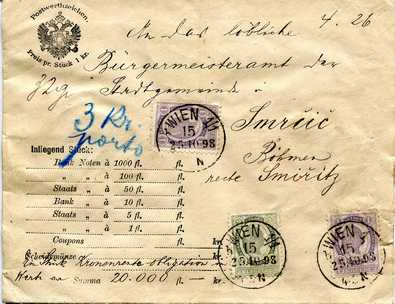 Postwerthzeichen.
Preis pr. Stück 1 kr.
4. 26
An das löbliche
Bürgermeisteramt der
Stadtgemeinde
Smrčič
Böhmen
recte Smiřitz
3 Kr.
porto
WIEN 1/1
15
25.10.98
N
Inliegend Stück:
Bank Noten à 1000 fl. fl.
„ „ à 100 fl. fl.
Staats „ à 50 fl. fl.
Bank „ à 10 fl. fl.
Staats „ à 5 fl. fl.
„ „ à 1 fl. fl.
Coupons fl. kr.
Scheidemünze
Stück Kronenrente Obligation
Summa 20.000 fl. kr.
WIEN 1/1
15
25.10.98
N
WIEN 1/1
15
25.10.98
N